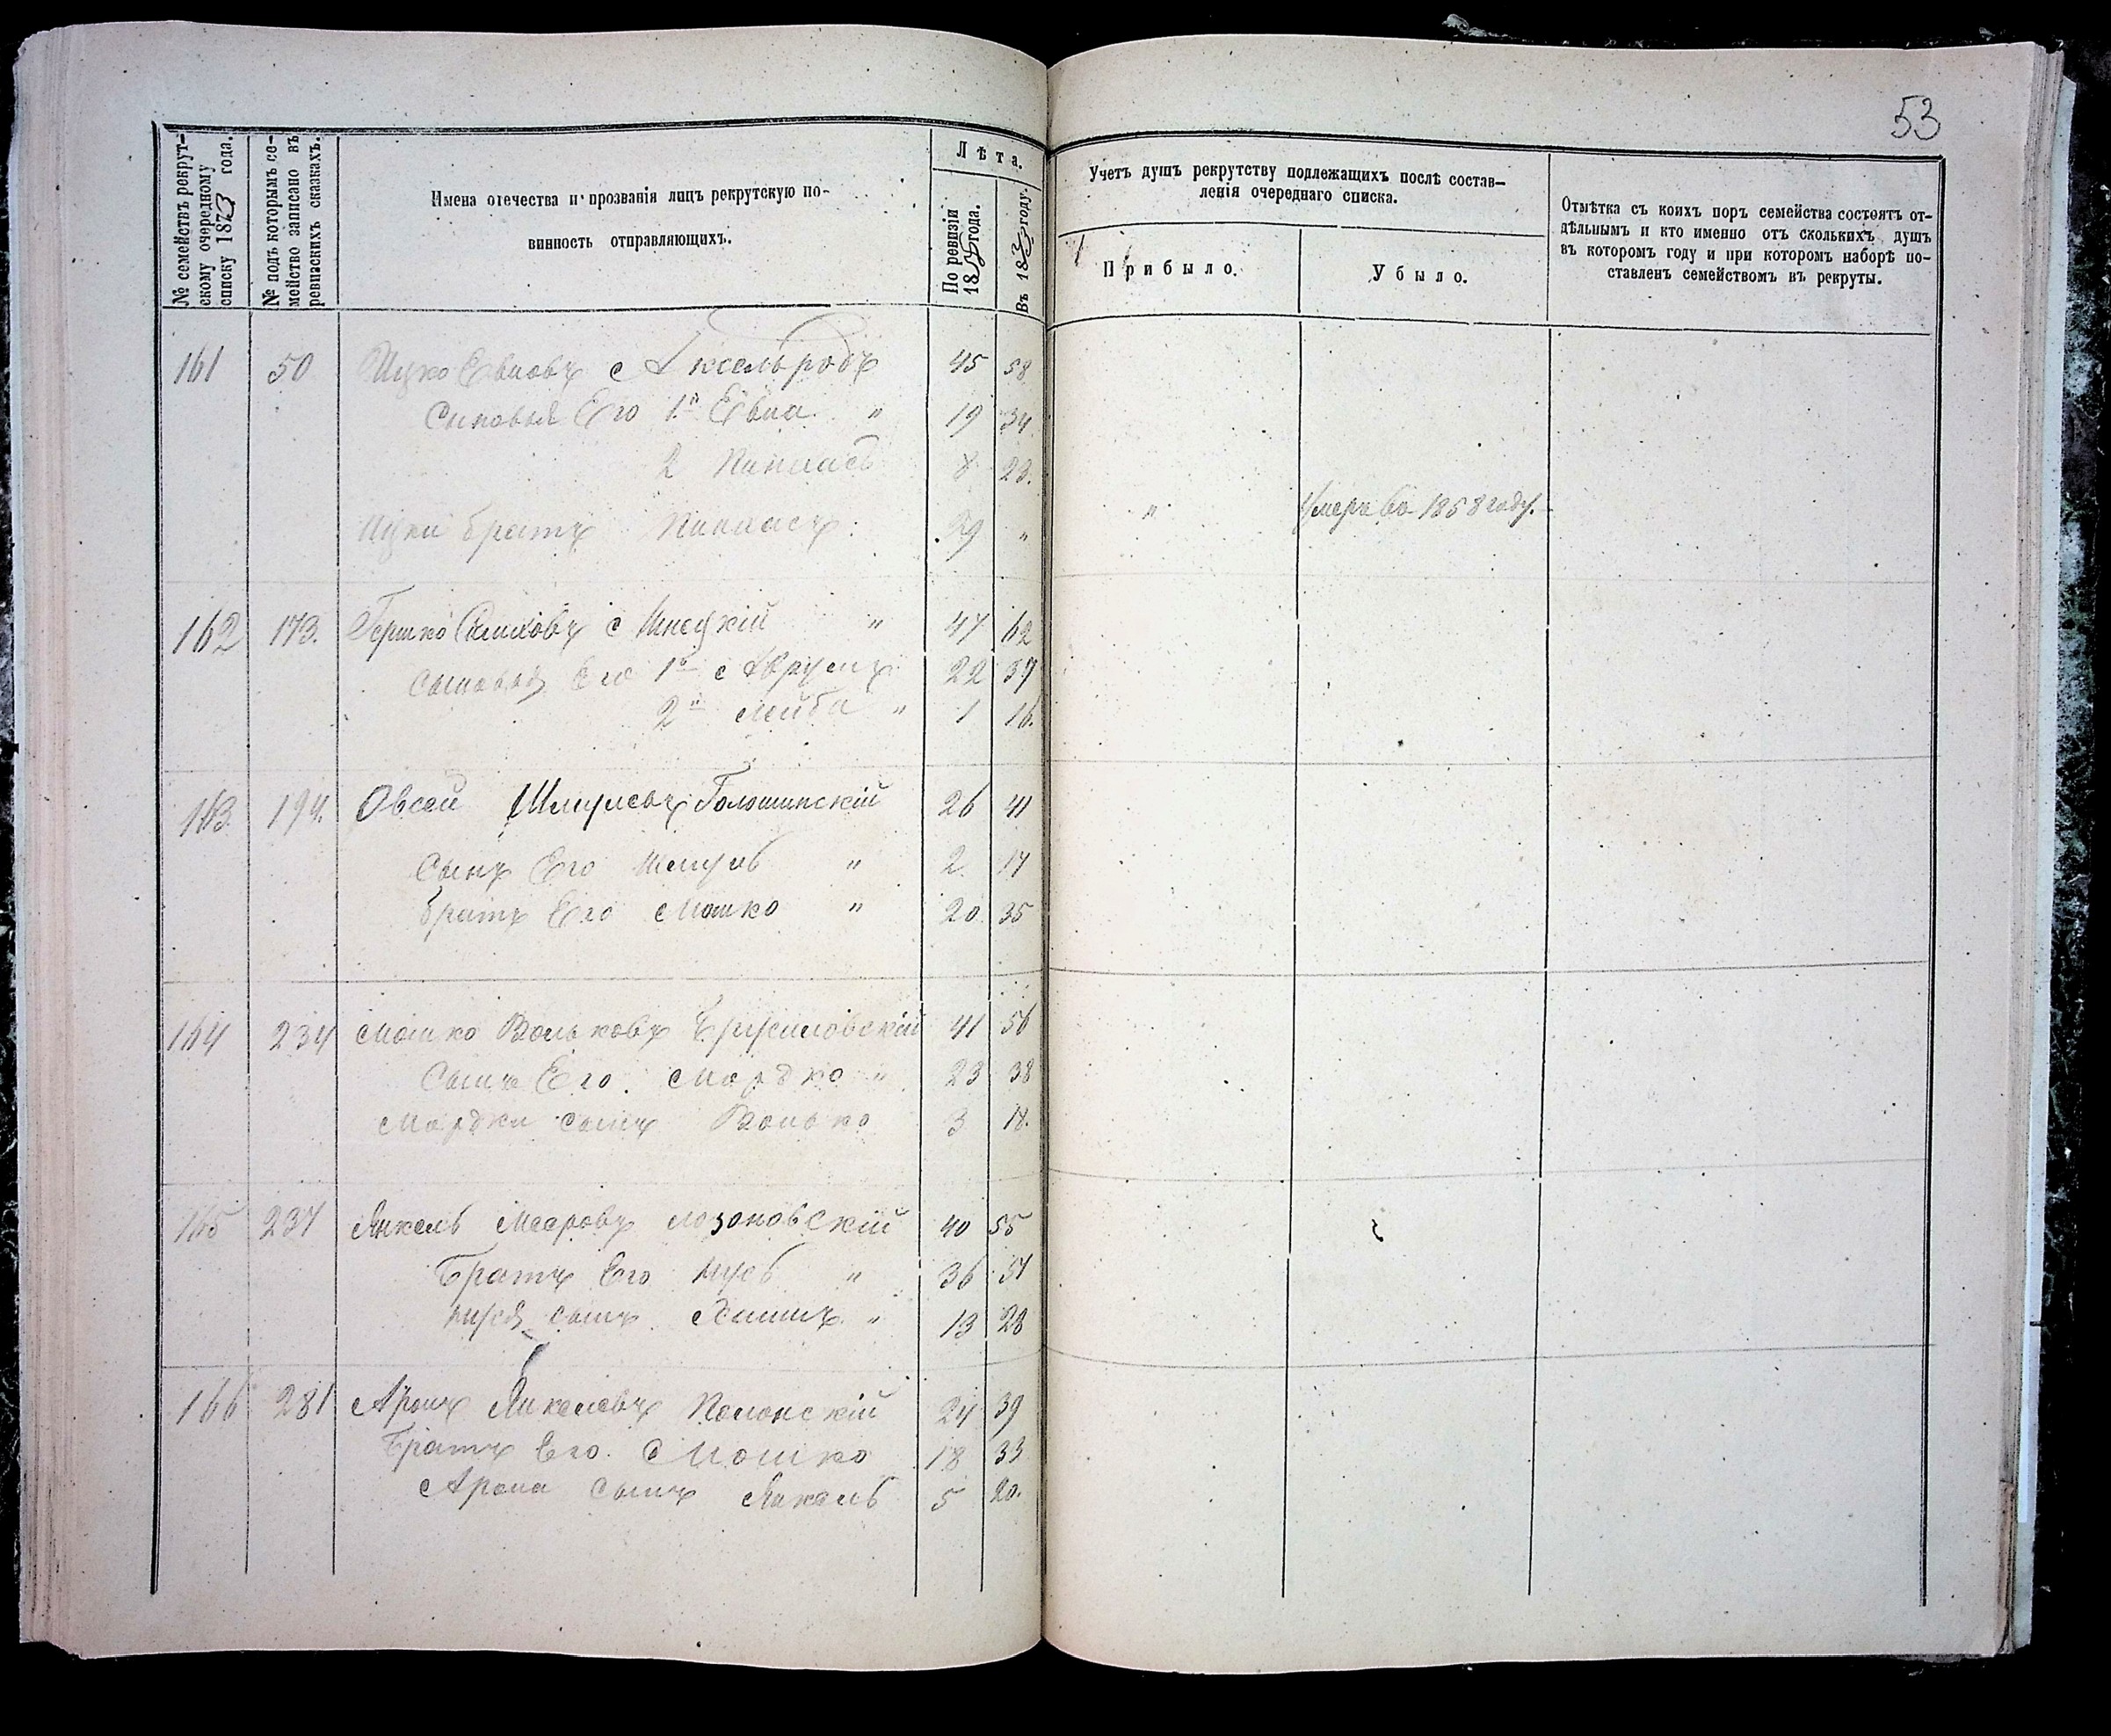 53
№ семействъ рекрут-
скому очередному
списку 1873 года.
№ подъ которымъ се-
мейство записано въ
ревизскихъ сказкахъ.
Имена отечества и прозванія лицъ рекрутскую по-
винность отправляющихъ.
Лѣта.
По ревизіи
1858 года.
Въ 1873 году.
Учетъ душъ рекрутству подлежащихъ послѣ состав-
ленія очереднаго списка.
Прибыло.
Убыло.
Отмѣтка съ коихъ поръ семейства состоятъ от-
дѣльнымъ и кто именно отъ сколькихъ душъ
въ которомъ году и при которомъ наборѣ по-
ставленъ семействомъ въ рекруты.
161 50 Ицко Евновъ Аксельродъ 45 58
Сыновья Его 1й Евна " 19 34
2 Пинхасъ 8 23.
Ицки братъ Пинхасъ. 29 " " Умеръ въ 1858 году.
162 173. Гершко Шнецкій " 47 62
Сыновья Его 1й Аврумъ 22 37
2й Лейба " 1 16.
163. 194. Овсей Шмулевъ Голошинскій 26 41
Сынъ Его Шмуль " 2 17
братъ Его Мошко " 20 35
164 234 Мошко Вольковъ 41 56
Сынъ Его Мордко " 23 38
Мордки сынъ Волько 3 18.
165 237 Янкель Мееровъ Лозоновскій 40 55
Братъ Его Нусь " 36 51
Нуся сынъ Хаимъ " 13 28
166 281 Аронъ Янкелевъ Полонскій 24 39
Братъ Его Мошко 18 33
Арона сынъ Янкель 5 20.